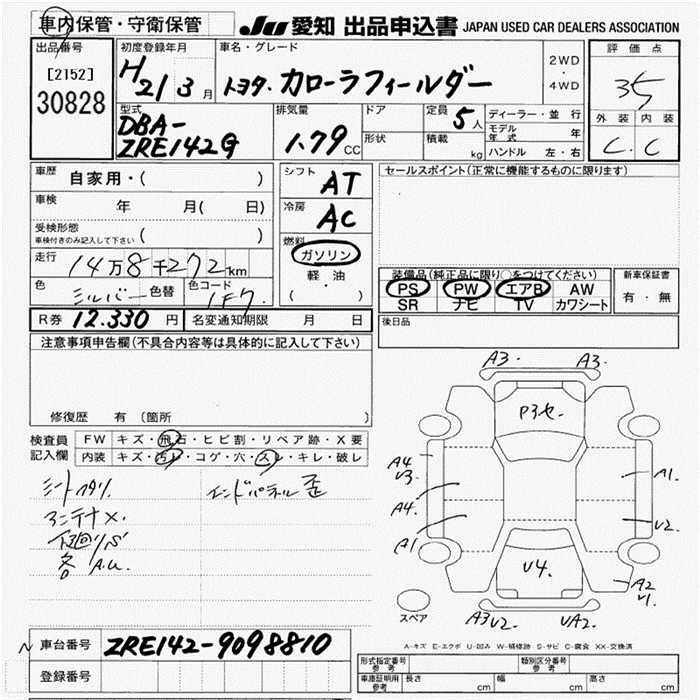 車内保管・守衛保管 JU愛知 出品申込書 JAPAN USED CAR DEALERS ASSOCIATION
出品番号 初度登録年月 車名・グレード 2WD・4WD 評価点
[2152] H21 3月 トヨタ. カローラフィールダー 35
30828 型式 排気量 ドア 定員 5人 ディーラー・並行 外装 内装
DBA- 1.79CC 形状 積載 kg モデル年式 年 C. C
ZRE142G ハンドル 左・右
車歴 自家用・( ) シフト AT セールスポイント(正常に機能するものに限ります)
車検 年 月( 日) 冷房 AC
受検形態
車検付きのみ記入して下さい ( ) 燃料 ガソリン
走行 14万8千272km 軽・油 装備品(純正品に限り〇をつけてください) 新車保証書
色 シルバー 色替 色コード 1F7 ( ) PS PW エアB AW 有・無
SR ナビ TV カワシート
R券 12.330円 名変通知期限 月 日 後日品
注意事項申告欄(不具合内容等は具体的に記入して下さい)
修復歴 有 (箇所 )
検査員 FW キズ・飛石・ヒビ割・リペア跡・X要
記入欄 内装 キズ・汚レ・コゲ・穴・スレ・キレ・破レ
シートヘタリ インドパネル 歪
アンテナX.
下廻りS
各 A.U.
A3. A3.
P3セ.
A4 V3. A1.
A4. V2.
A1 V4. A2 V1.
スペア A3V2. VA2.
A-キズ E-エクボ U-凹み W-補修跡 S-サビ C-腐食 XX-交換済
車台番号 ZRE142-9098810
登録番号
形式指定番号 参考 類別区分番号 参考
車庫証明用 参考 長さ cm 幅 cm 高さ cm